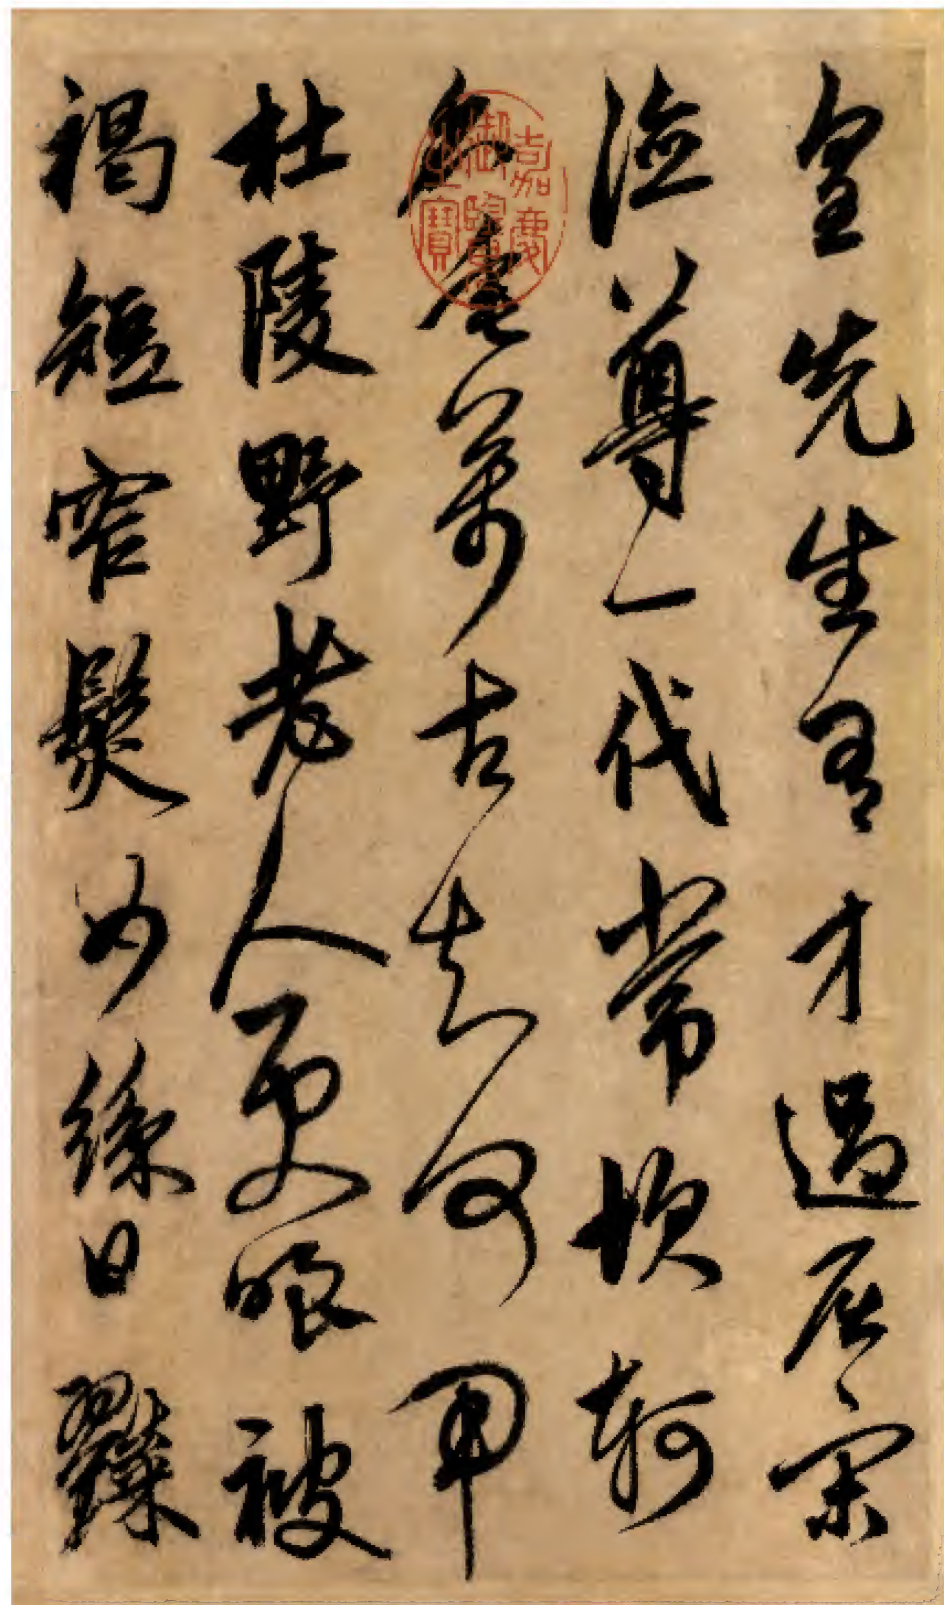 皇先生有才過屈宋
德尊一代常坎軻
名垂萬古知何用
杜陵野老人更嗤被
褐短窄鬢如絲日糴
嘉慶
御覽
之寶